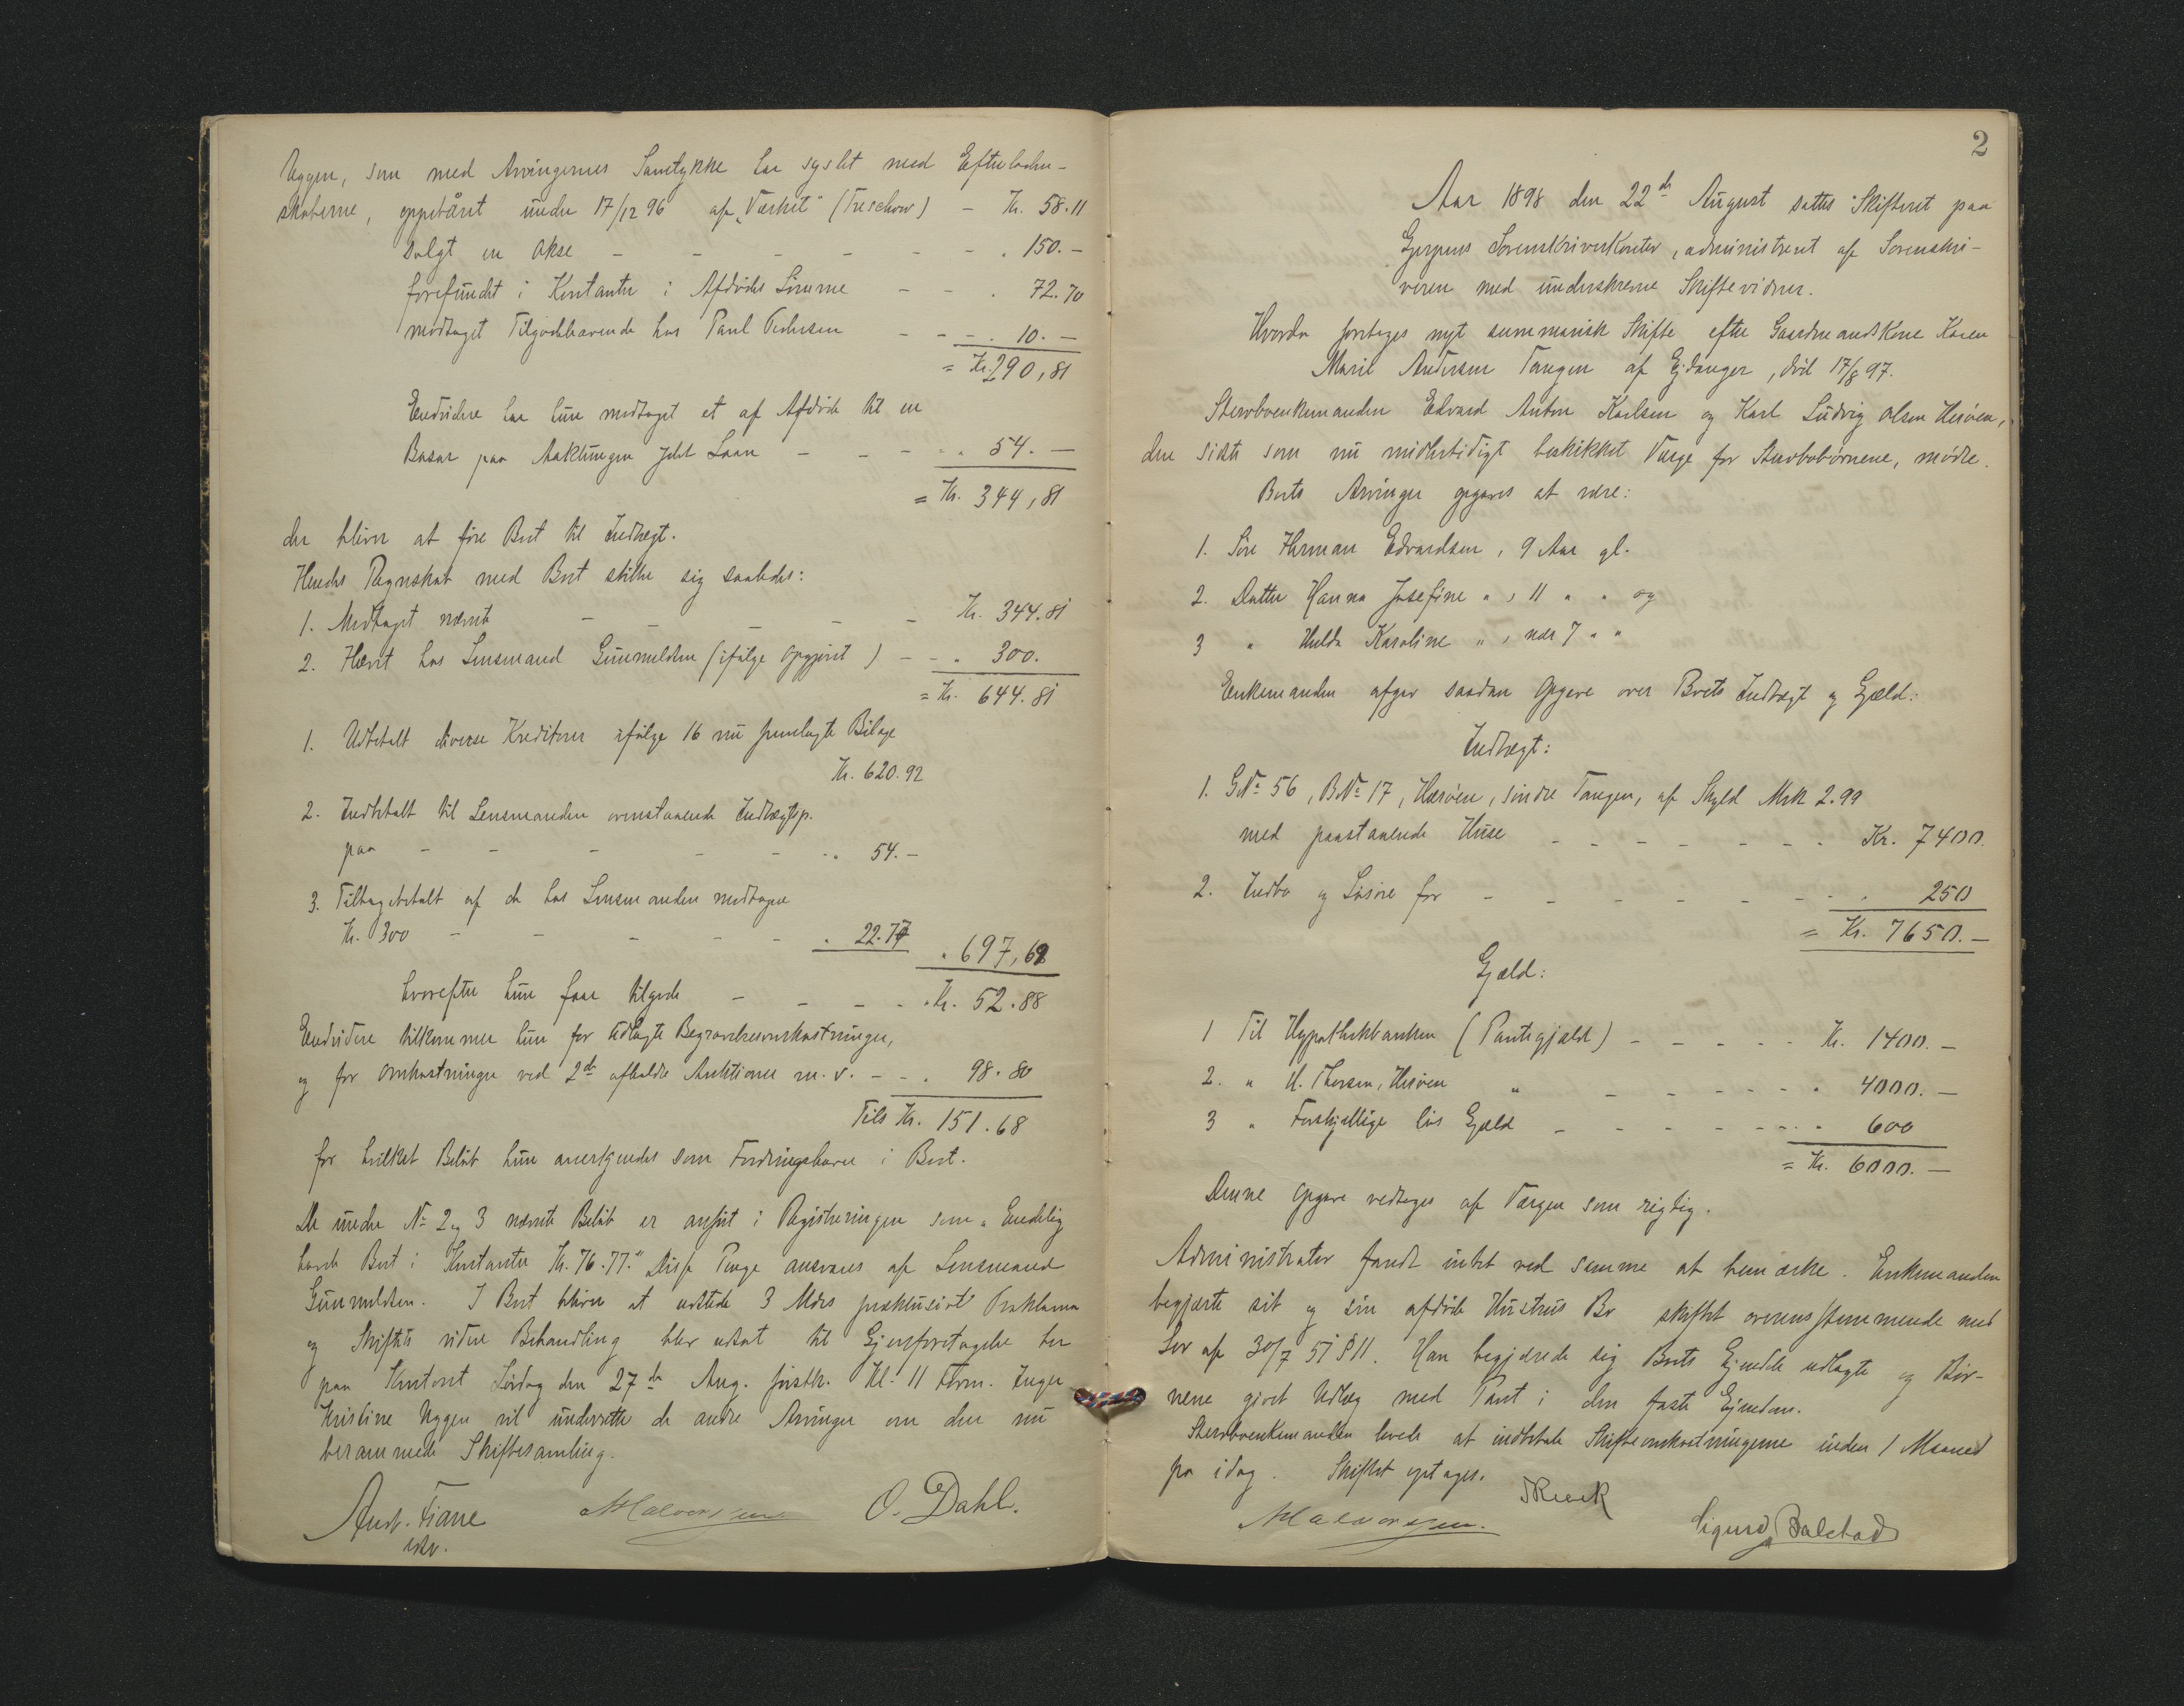 Uggen, som med Arvingernes Samtykke har syslet med Efterladen-
skaberne, oppebåret under 17/12 96 af „Værket" (Treschow) - Kr. 58.11
Solgt en Okse - - - - - - . 150.-
forefundet i Kontanter i Afdødes Gjemme - - . 72.70
modtaget Tilgodehavende hos Paul Pedersen - - - . 10.-
= Kr. 290,81
Endvidere har hun modtaget et af Afdøde til en
Basar paa Aaklungen ydet Laan - - - . . 54.-
= Kr. 344,81
der bliver at føre Boet til Indtægt.
Hendes Regnskab med Boet stiller sig saaledes:
1. Modtaget nævnte - - - - - Kr. 344.81
2. Hævet hos Lensmand Gunnuldsen (ifølge Opgjøret) - - . 300.
= Kr. 644.81
1. Udbetalt diverse Kreditorer ifølge 16 nu fremlagte Bilage
Kr. 620.92
2. Indbetalt til Lensmanden ovenstaaende Indtægtsp.
paa - - - - - . . 54.-
3. Tilbagebetalt af de hos Lensmanden modtagne
Kr. 300 - - - - - . 22.77 . 697,69
hvorefter hun faar tilgode - - - - . Kr. 52.88
Endvidere tilkommer hun for udlagte Begravelsesomkostninger,
og for Omkostninger ved 2de afholdte Auktioner m.v. - - . 98.80
Tils Kr. 151.68
for hvilket Beløb hun anerkjendes som Fordringshaver i Boet.
De under No 2 og 3 nævnte Beløb er anført i Registreringen som „Endelig
havde Boet i Kontanter Kr. 76.77." Disse Penge ansvares af Lensmand
Gunnuldsen. I Boet bliver at udstede 3 Mdrs præklusivt Proklama
og Skiftets videre Behandling blev udsat til Gjenforetagelse her
paa Kontoret Lørdag den 27de Aug. førstk. Kl. 11 Form. Inger
Kristine Uggen vil underrette de andre Arvinger om den nu
berammede Skiftesamling.
Anst. Fiane A Halvorsen O. Dahl.
cst.
2
Aar 1898 den 22de August sattes Skifteret paa
Gjerpens Sorenskriverkontor, administreret af Sorenskri-
veren med underskrevne Skiftevidner.
Hvorda foretoges nyt summarisk Skifte efter Gaardmandskone Karen
Marie Andersen Tangen af Ejdanger, død 17/8 97.
Stervboenkemanden Edvard Anton Karlsen og Karl Ludvig Olsen Herøen,
den sidste som nu midlertidigt beskikket Værge for Stervbobørnene, mødte.
Boets Arvinger opgaves at være:
1. Søn Herman Edvardsen, 9 Aar gl.
2. Datter Hanna Josefine " , 11 " " og
3 " Hulda Karoline " , nær 7 " "
Enkemanden afgav saadan Opgave over Boets Indtægt og Gjæld:
Indtægt:
1. GNo 56, BNo 17, Herøen, søndre Tangen, af Skyld Mrk 2.99
med paastaaende Huse - - - - - - - . Kr. 7400.
2. Indbo og Løsøre for - - - - - - - . 250
= Kr. 7650.-
Gjæld:
1 Til Hypothekbanken (Pantegjæld) - - - - - Kr. 1400.-
2. " H. Thorsen, Herøen " - - - - - . 4000.-
3 " Forskjellige løs Gjæld - - - - - - . . 600
= Kr. 6000.-
Denne Opgave vedtoges af Værgen som rigtig.
Administrator fandt intet ved samme at bemærke. Enkemanden
begjærte sit og sin afdøde Hustrus Bo skiftet overensstemmende med
Lov af 30/7 51 § 11. Han begjærede sig Boets Ejendele udlagte og Bør-
nene givet Udlæg med Pant i den faste Ejendom.
Stervboenkemanden lovede at indbetale Skifteomkostningerne inden 1 Maaned
fra idag. Skiftet optages.
A Halvorsen. Sigurd Balstad